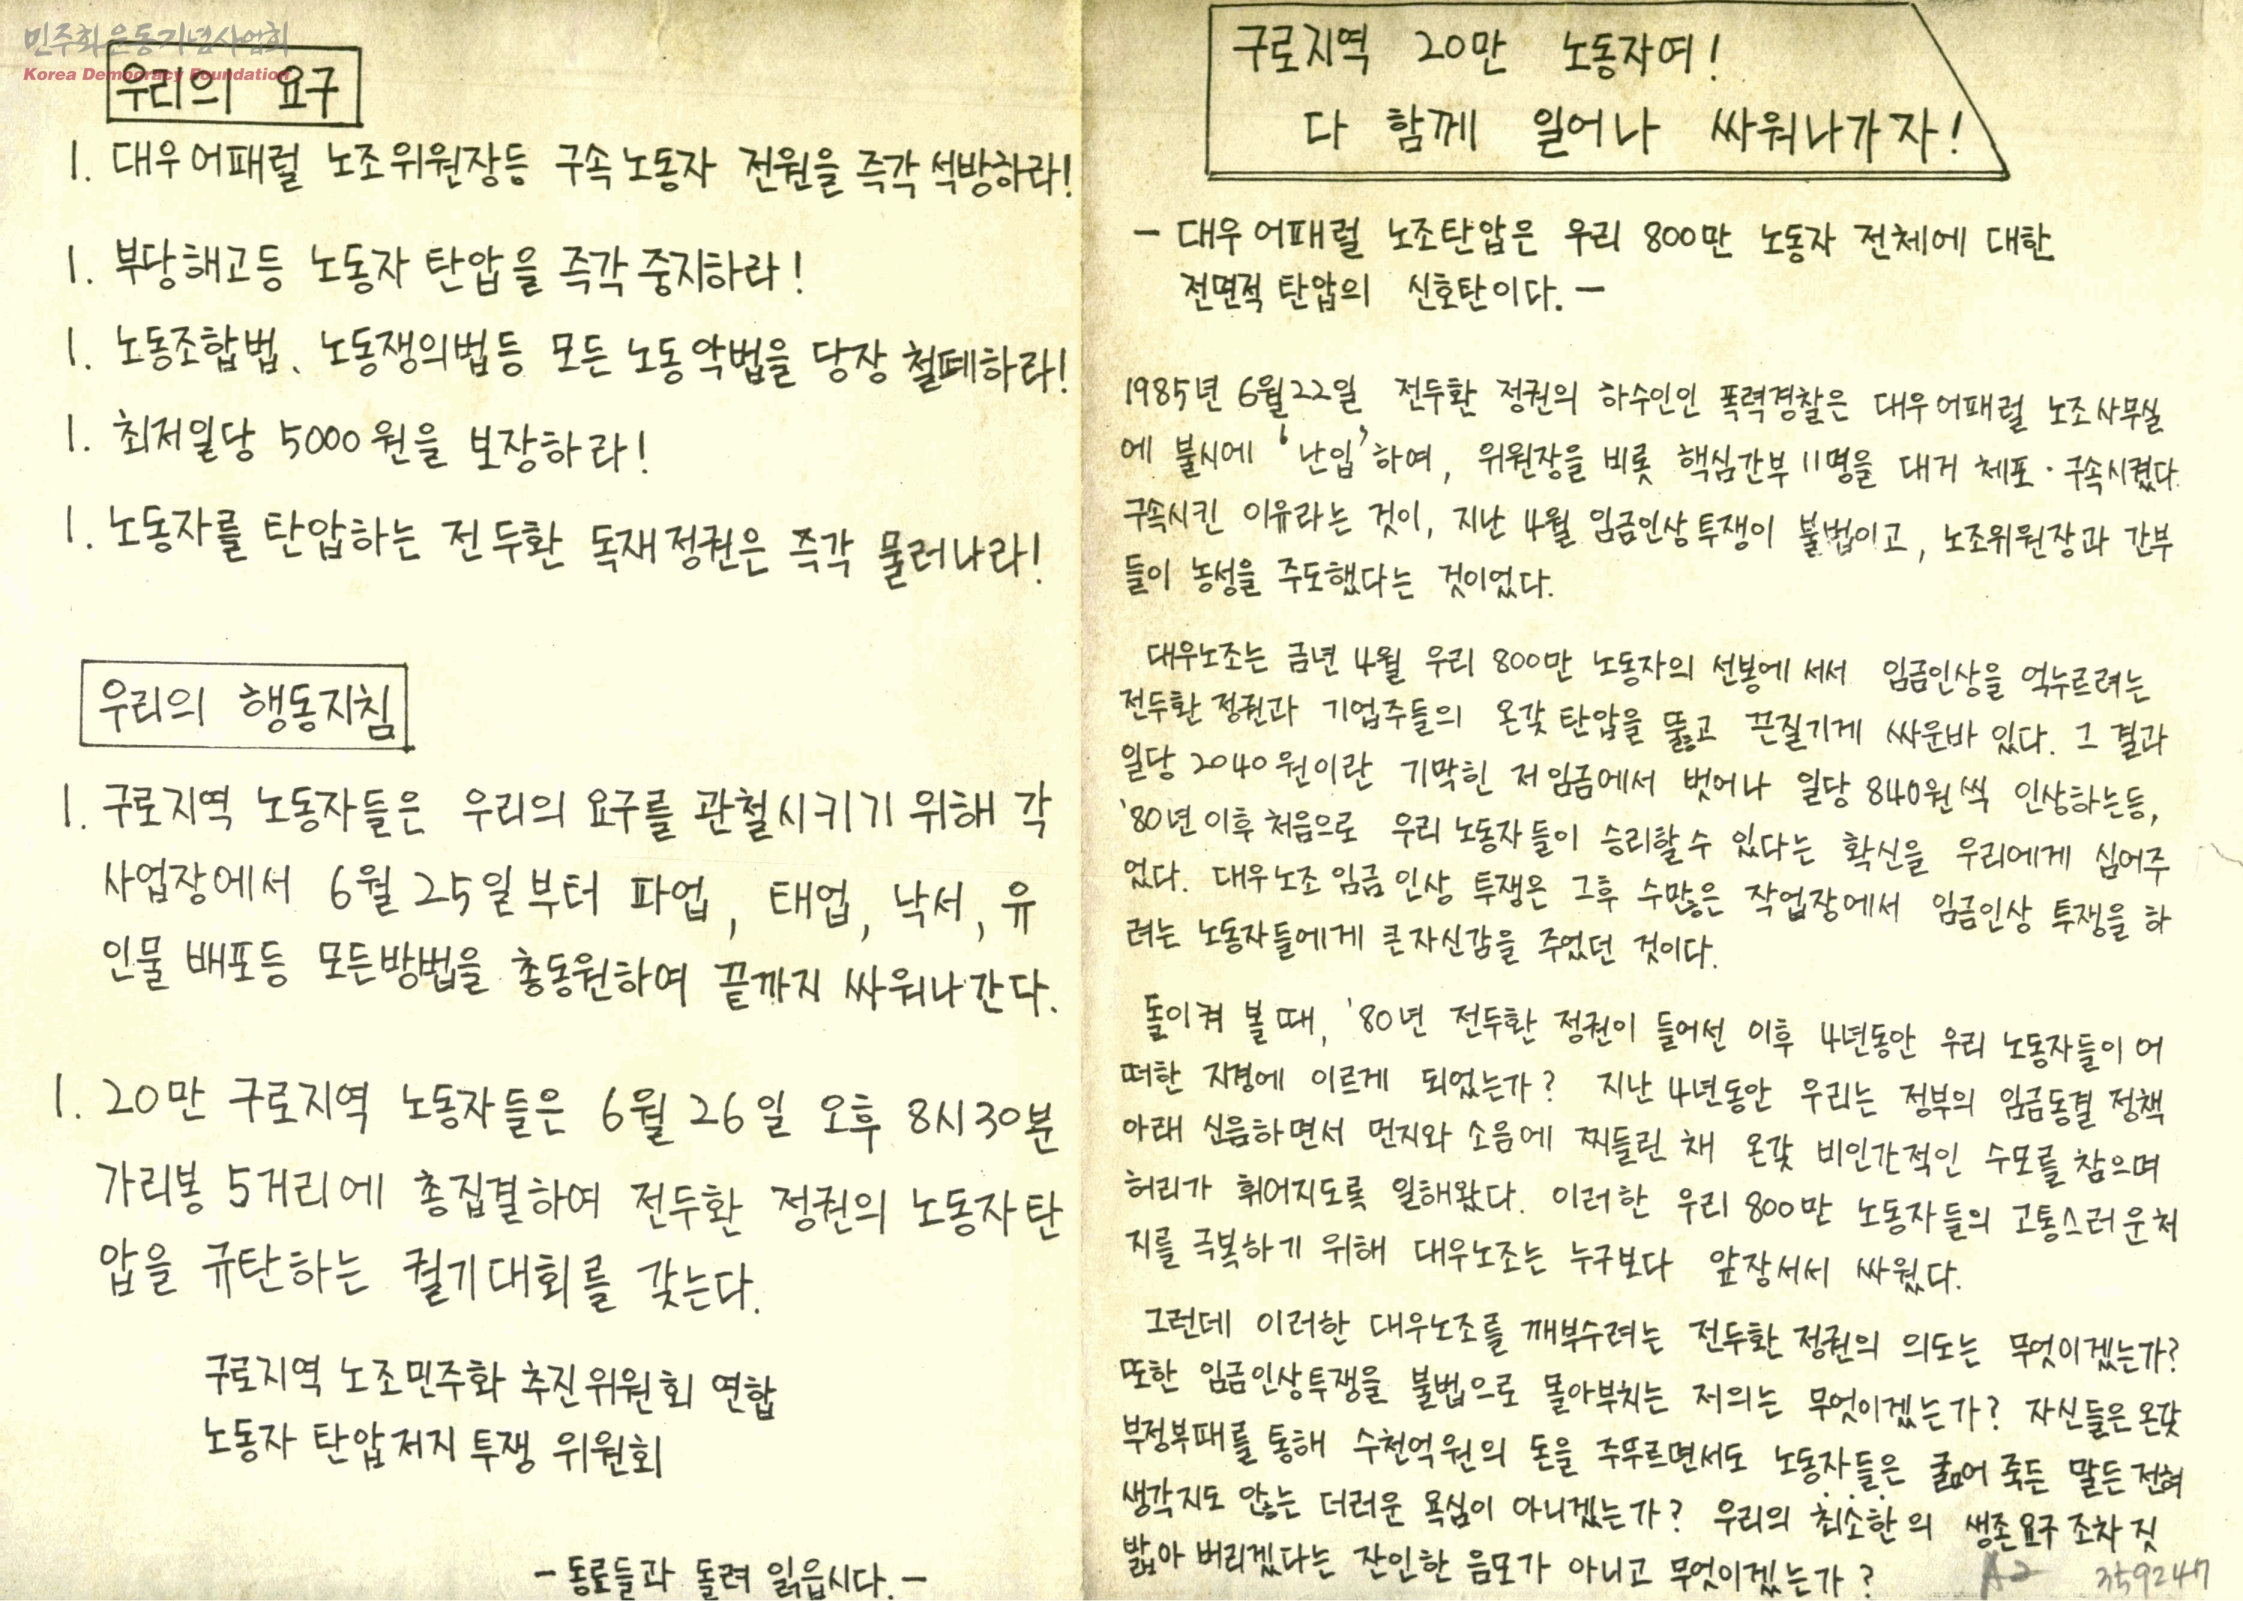 민주화운동기념사업회
Korea Democracy Foundation
우리의 요구
1. 대우어패럴 노조위원장등 구속노동자 전원을 즉각 석방하라!
1. 부당해고등 노동자 탄압을 즉각 중지하라!
1. 노동조합법、노동쟁의법등 모든 노동악법을 당장 철폐하라!
1. 최저일당 5000원을 보장하라!
1. 노동자를 탄압하는 전두환 독재정권은 즉각 물러나라!
우리의 행동지침
1. 구로지역 노동자들은 우리의 요구를 관철시키기 위해 각
사업장에서 6월 25일부터 파업, 태업, 낙서, 유
인물 배포등 모든방법을 총동원하여 끝까지 싸워나간다.
1. 20만 구로지역 노동자들은 6월 26일 오후 8시30분
가리봉 5거리에 총집결하여 전두환 정권의 노동자탄
압을 규탄하는 궐기대회를 갖는다.
구로지역 노조민주화 추진위원회 연합
노동자 탄압저지 투쟁 위원회
- 동료들과 돌려 읽읍시다. -
구로지역 20만 노동자여!
다 함께 일어나 싸워나가자!
- 대우어패럴 노조탄압은 우리 800만 노동자 전체에 대한
전면적 탄압의 신호탄이다. -
1985년 6월22일, 전두환 정권의 하수인인 폭력경찰은 대우어패럴 노조사무실
에 불시에 '난입'하여, 위원장을 비롯 핵심간부 11명을 대거 체포·구속시켰다.
구속시킨 이유라는 것이, 지난 4월 임금인상투쟁이 불법이고, 노조위원장과 간부
들이 농성을 주도했다는 것이었다.
대우노조는 금년 4월 우리 800만 노동자의 선봉에 서서 임금인상을 억누르려는
전두환 정권과 기업주들의 온갖 탄압을 뚫고 끈질기게 싸운바 있다. 그 결과
일당 2040원이란 기막힌 저임금에서 벗어나 일당 840원씩 인상하는등,
'80년 이후 처음으로 우리 노동자들이 승리할 수 있다는 확신을 우리에게 심어주
었다. 대우노조 임금인상 투쟁은 그후 수많은 작업장에서 임금인상 투쟁을 하
려는 노동자들에게 큰자신감을 주었던 것이다.
돌이켜 볼 때, '80년 전두환 정권이 들어선 이후 4년동안 우리 노동자들이 어
떠한 지경에 이르게 되었는가? 지난 4년동안 우리는 정부의 임금동결 정책
아래 신음하면서 먼지와 소음에 찌들린 채 온갖 비인간적인 수모를 참으며
허리가 휘어지도록 일해왔다. 이러한 우리 800만 노동자들의 고통스러운 처
지를 극복하기 위해 대우노조는 누구보다 앞장서서 싸웠다.
그런데 이러한 대우노조를 깨부수려는 전두환 정권의 의도는 무엇이겠는가?
또한 임금인상투쟁을 불법으로 몰아부치는 저의는 무엇이겠는가? 자신들은 온갖
부정부패를 통해 수천억원의 돈을 주무르면서도 노동자들은 굶어 죽든 말든 전혀
생각지도 않는 더러운 욕심이 아니겠는가? 우리의 최소한의 생존요구조차 짓
밟아 버리겠다는 잔인한 음모가 아니고 무엇이겠는가?
A2
359247